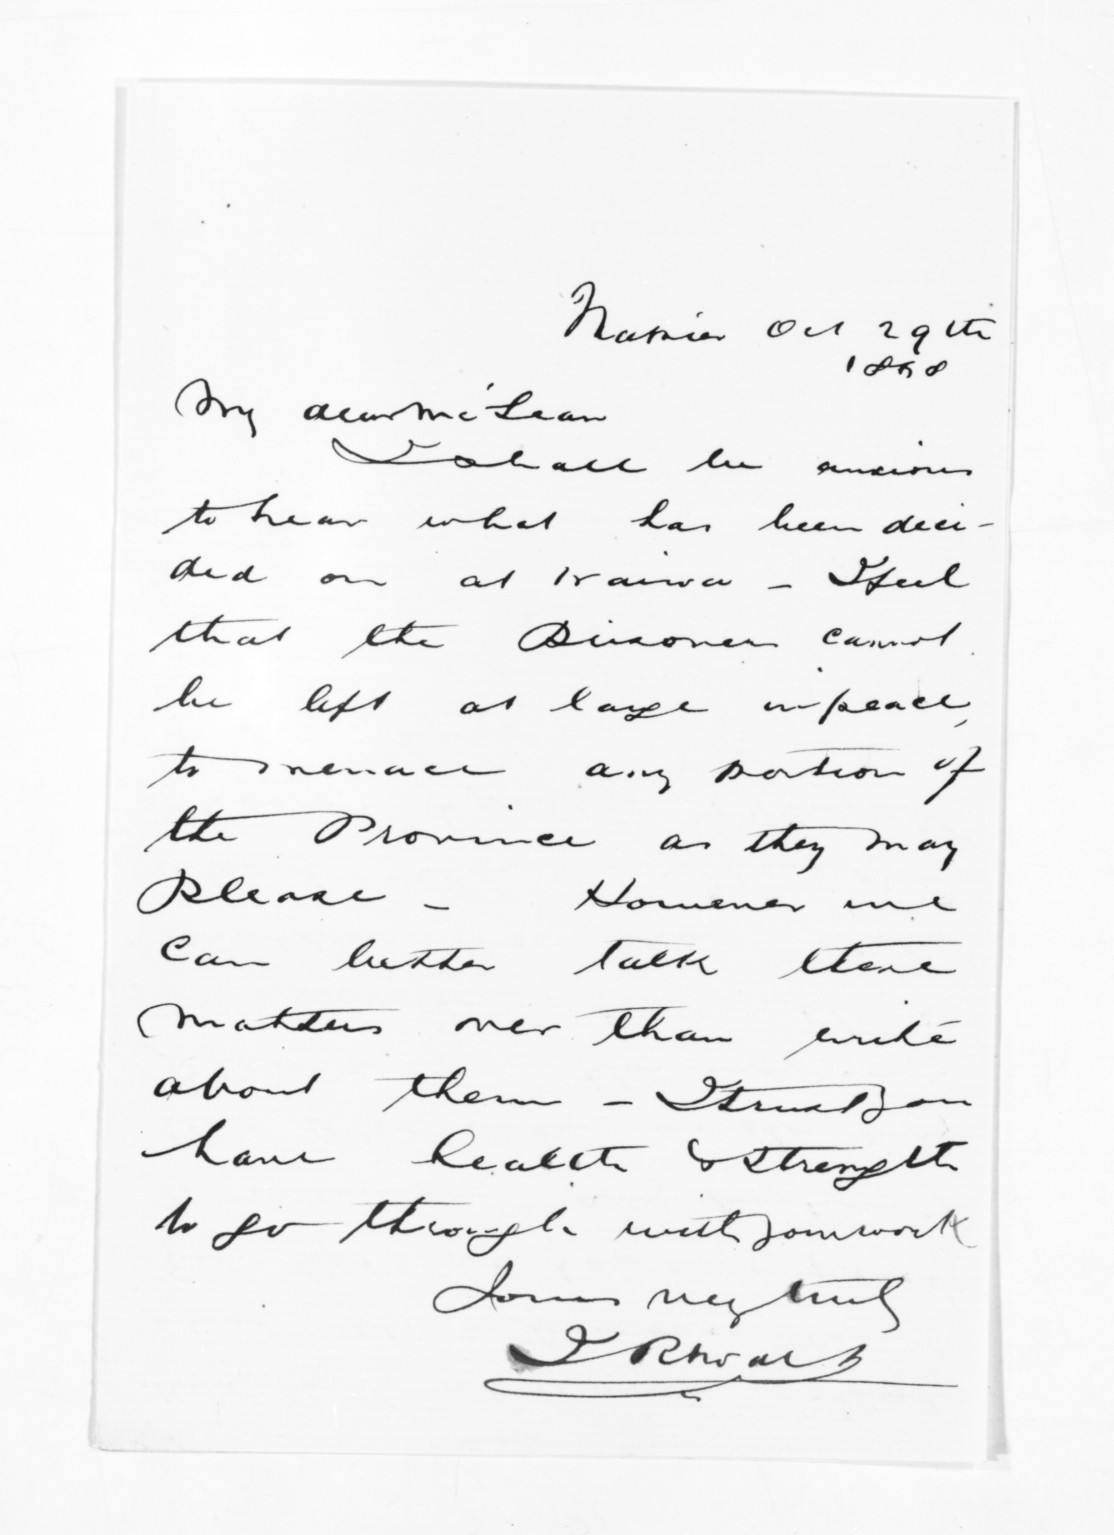 Napier Oct 29th
1868
My dear McLean
I shall be anxious
to hear what has been deci-
ded on at Wairoa - I feel
that the Prisoners cannot
be left at large in peace,
to menace any portion of
the Province as they may
Please - However we
can better talk these
matters over than write
about them - I trust you
have health & strength
to go through with your work
Yours very truly